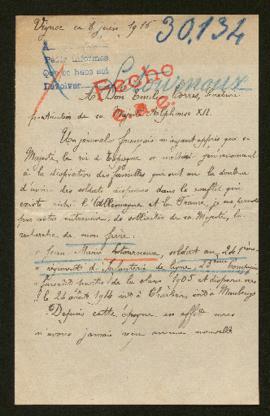 Vignoc ce 8 juin 1915
30,134
A
Pedir informes
Que se haga aquí
Devolver
Letournoux
Hecho
e.a.e.
A Don Emilio Torres, secrétaire
particulier de sa Majesté Alphonse XIII
Un journal français m'ayant appris que sa
Majesté, le roi d'Espagne se mettait gracieusement
à la disposition des familles qui ont la douleur
d'avoir des soldats disparus dans le conflit qui
existe entre l'Allemagne et la France, je me permets
par votre entremise, de solliciter de sa Majesté, la
recherche de mon frère.
Jean Marie Letournoux, soldat au
régiment d'infanterie de ligne 23ème Compagnie
de la classe 1905 et disparu
le 26 août 1914
Depuis cette époque en effet nous
n'avons jamais reçu aucune nouvelle